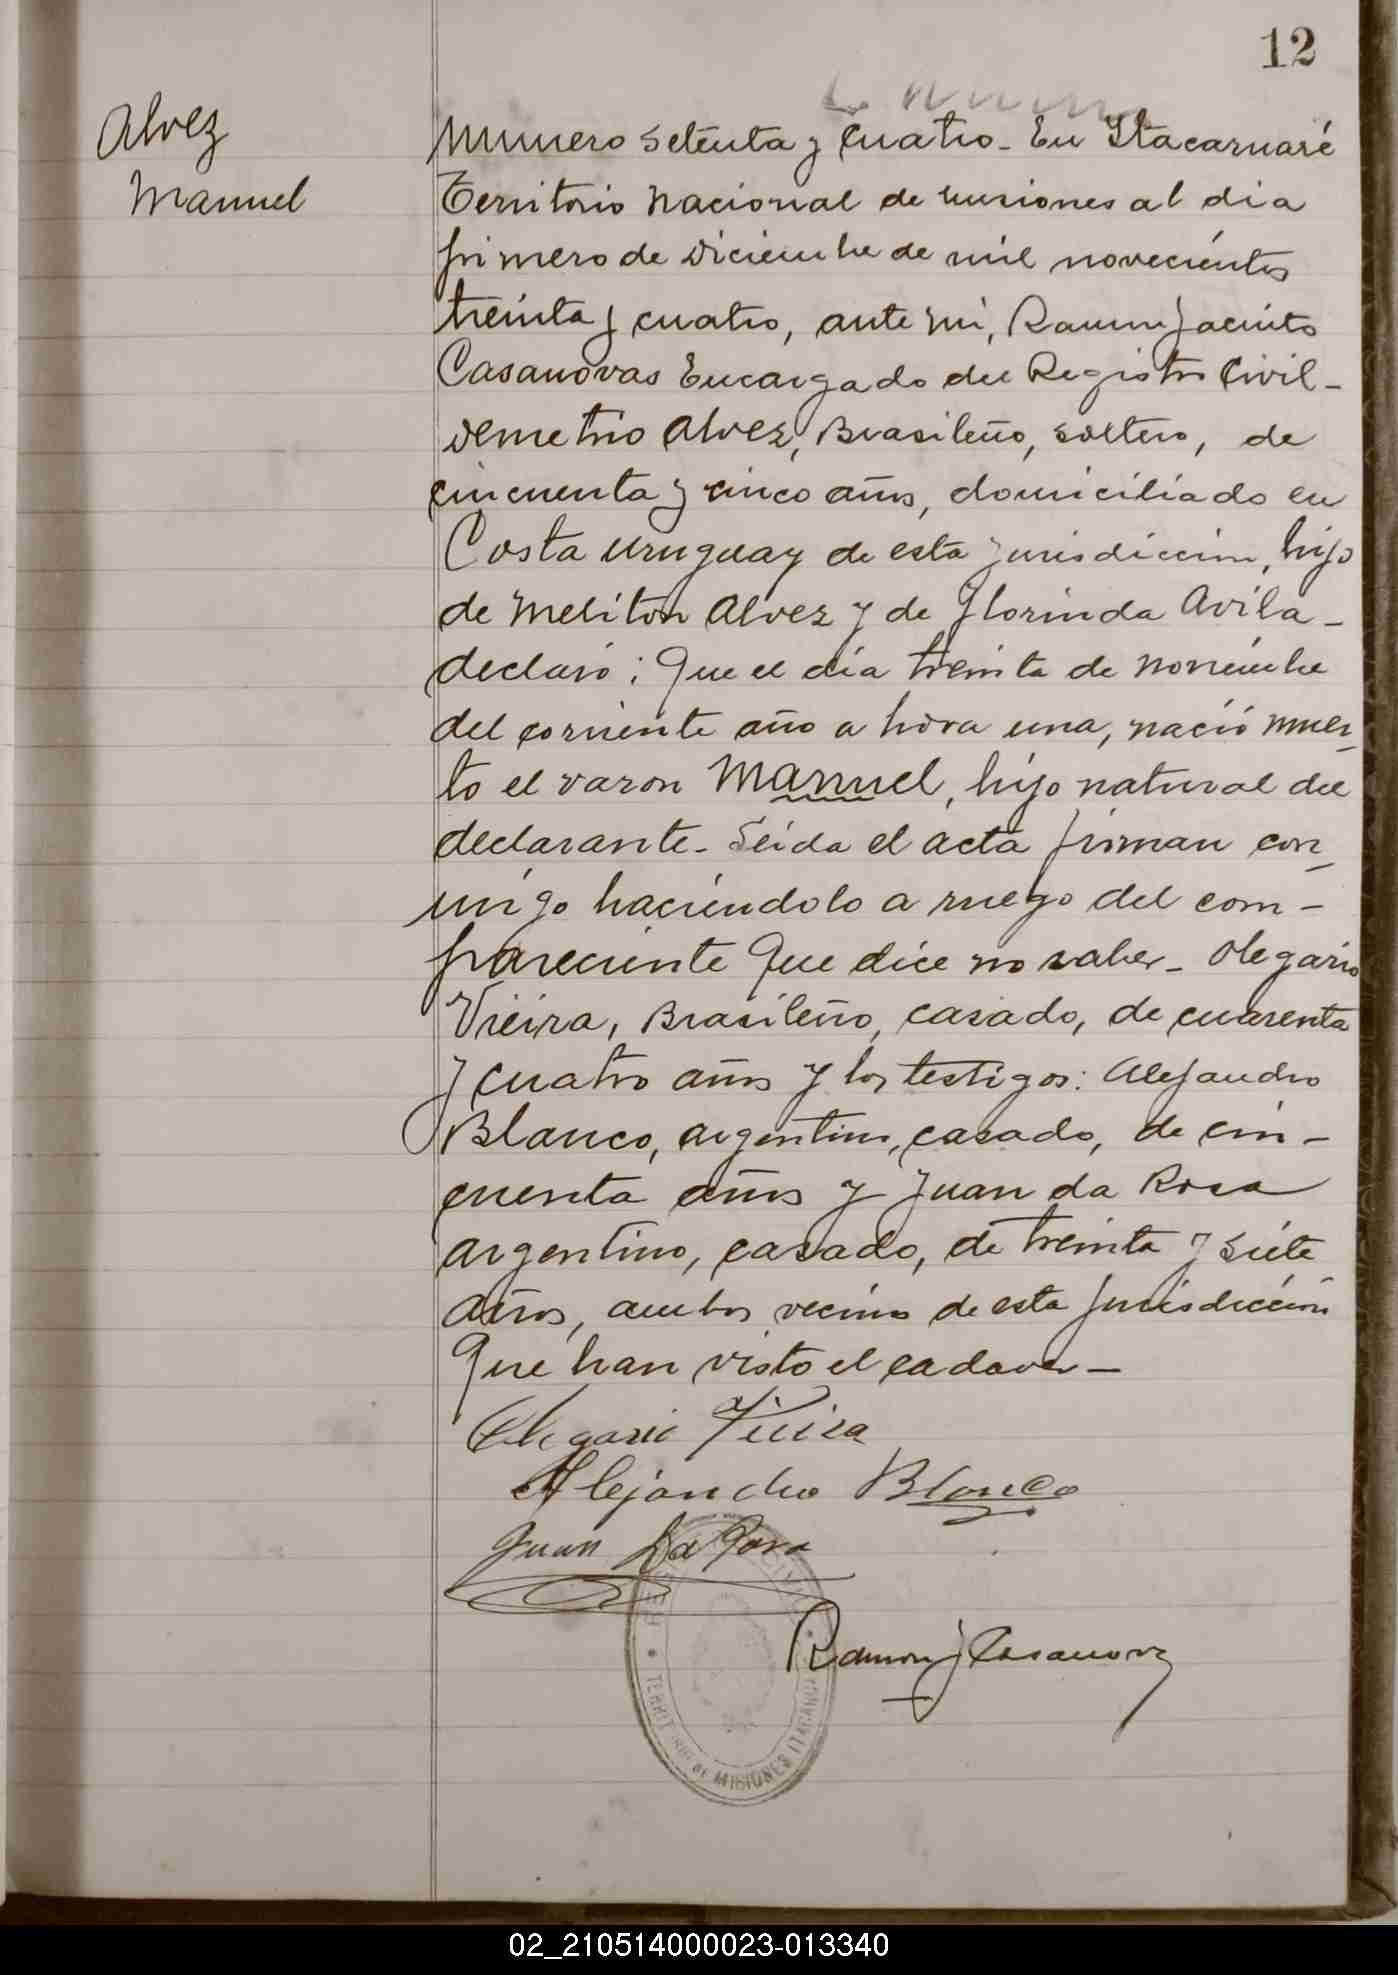 12
Alvez
Manuel
Numero setenta y cuatro - En Itacaruaré
Territorio Nacional de Misiones al dia
primero de Diciembre de mil novecientos
treinta y cuatro, ante mi, Ramon Jacinto
Casanovas Encargado del Registro Civil -
Demetrio Alvez, Brasileño, soltero, de
cincuenta y cinco años, domiciliado en
Costa Uruguay de esta jurisdiccion, hijo
de Meliton Alvez y de Florinda Avila -
declaró: Que el dia treinta de noviembre
del corriente año a hora una, nació muer-
to el varon Manuel, hijo natural del
declarante - Leida el acta firman con-
migo haciéndolo a ruego del com-
pareciente que dice no saber - Olegario
Vieira, Brasileño, casado, de cuarenta
y cuatro años y los testigos: Alejandro
Blanco, argentino, casado, de cin-
cuenta años y Juan da Rosa
argentino, casado, de treinta y siete
años, ambos vecinos de esta jurisdicción
Que han visto el cadaver -
Olegario Vieira
Alejandro Blanco
Juan Da Rosa
Ramon J Casanova
REGISTRO CIVIL
TERRITORIO DE MISIONES ITACARUARE
02_210514000023-013340